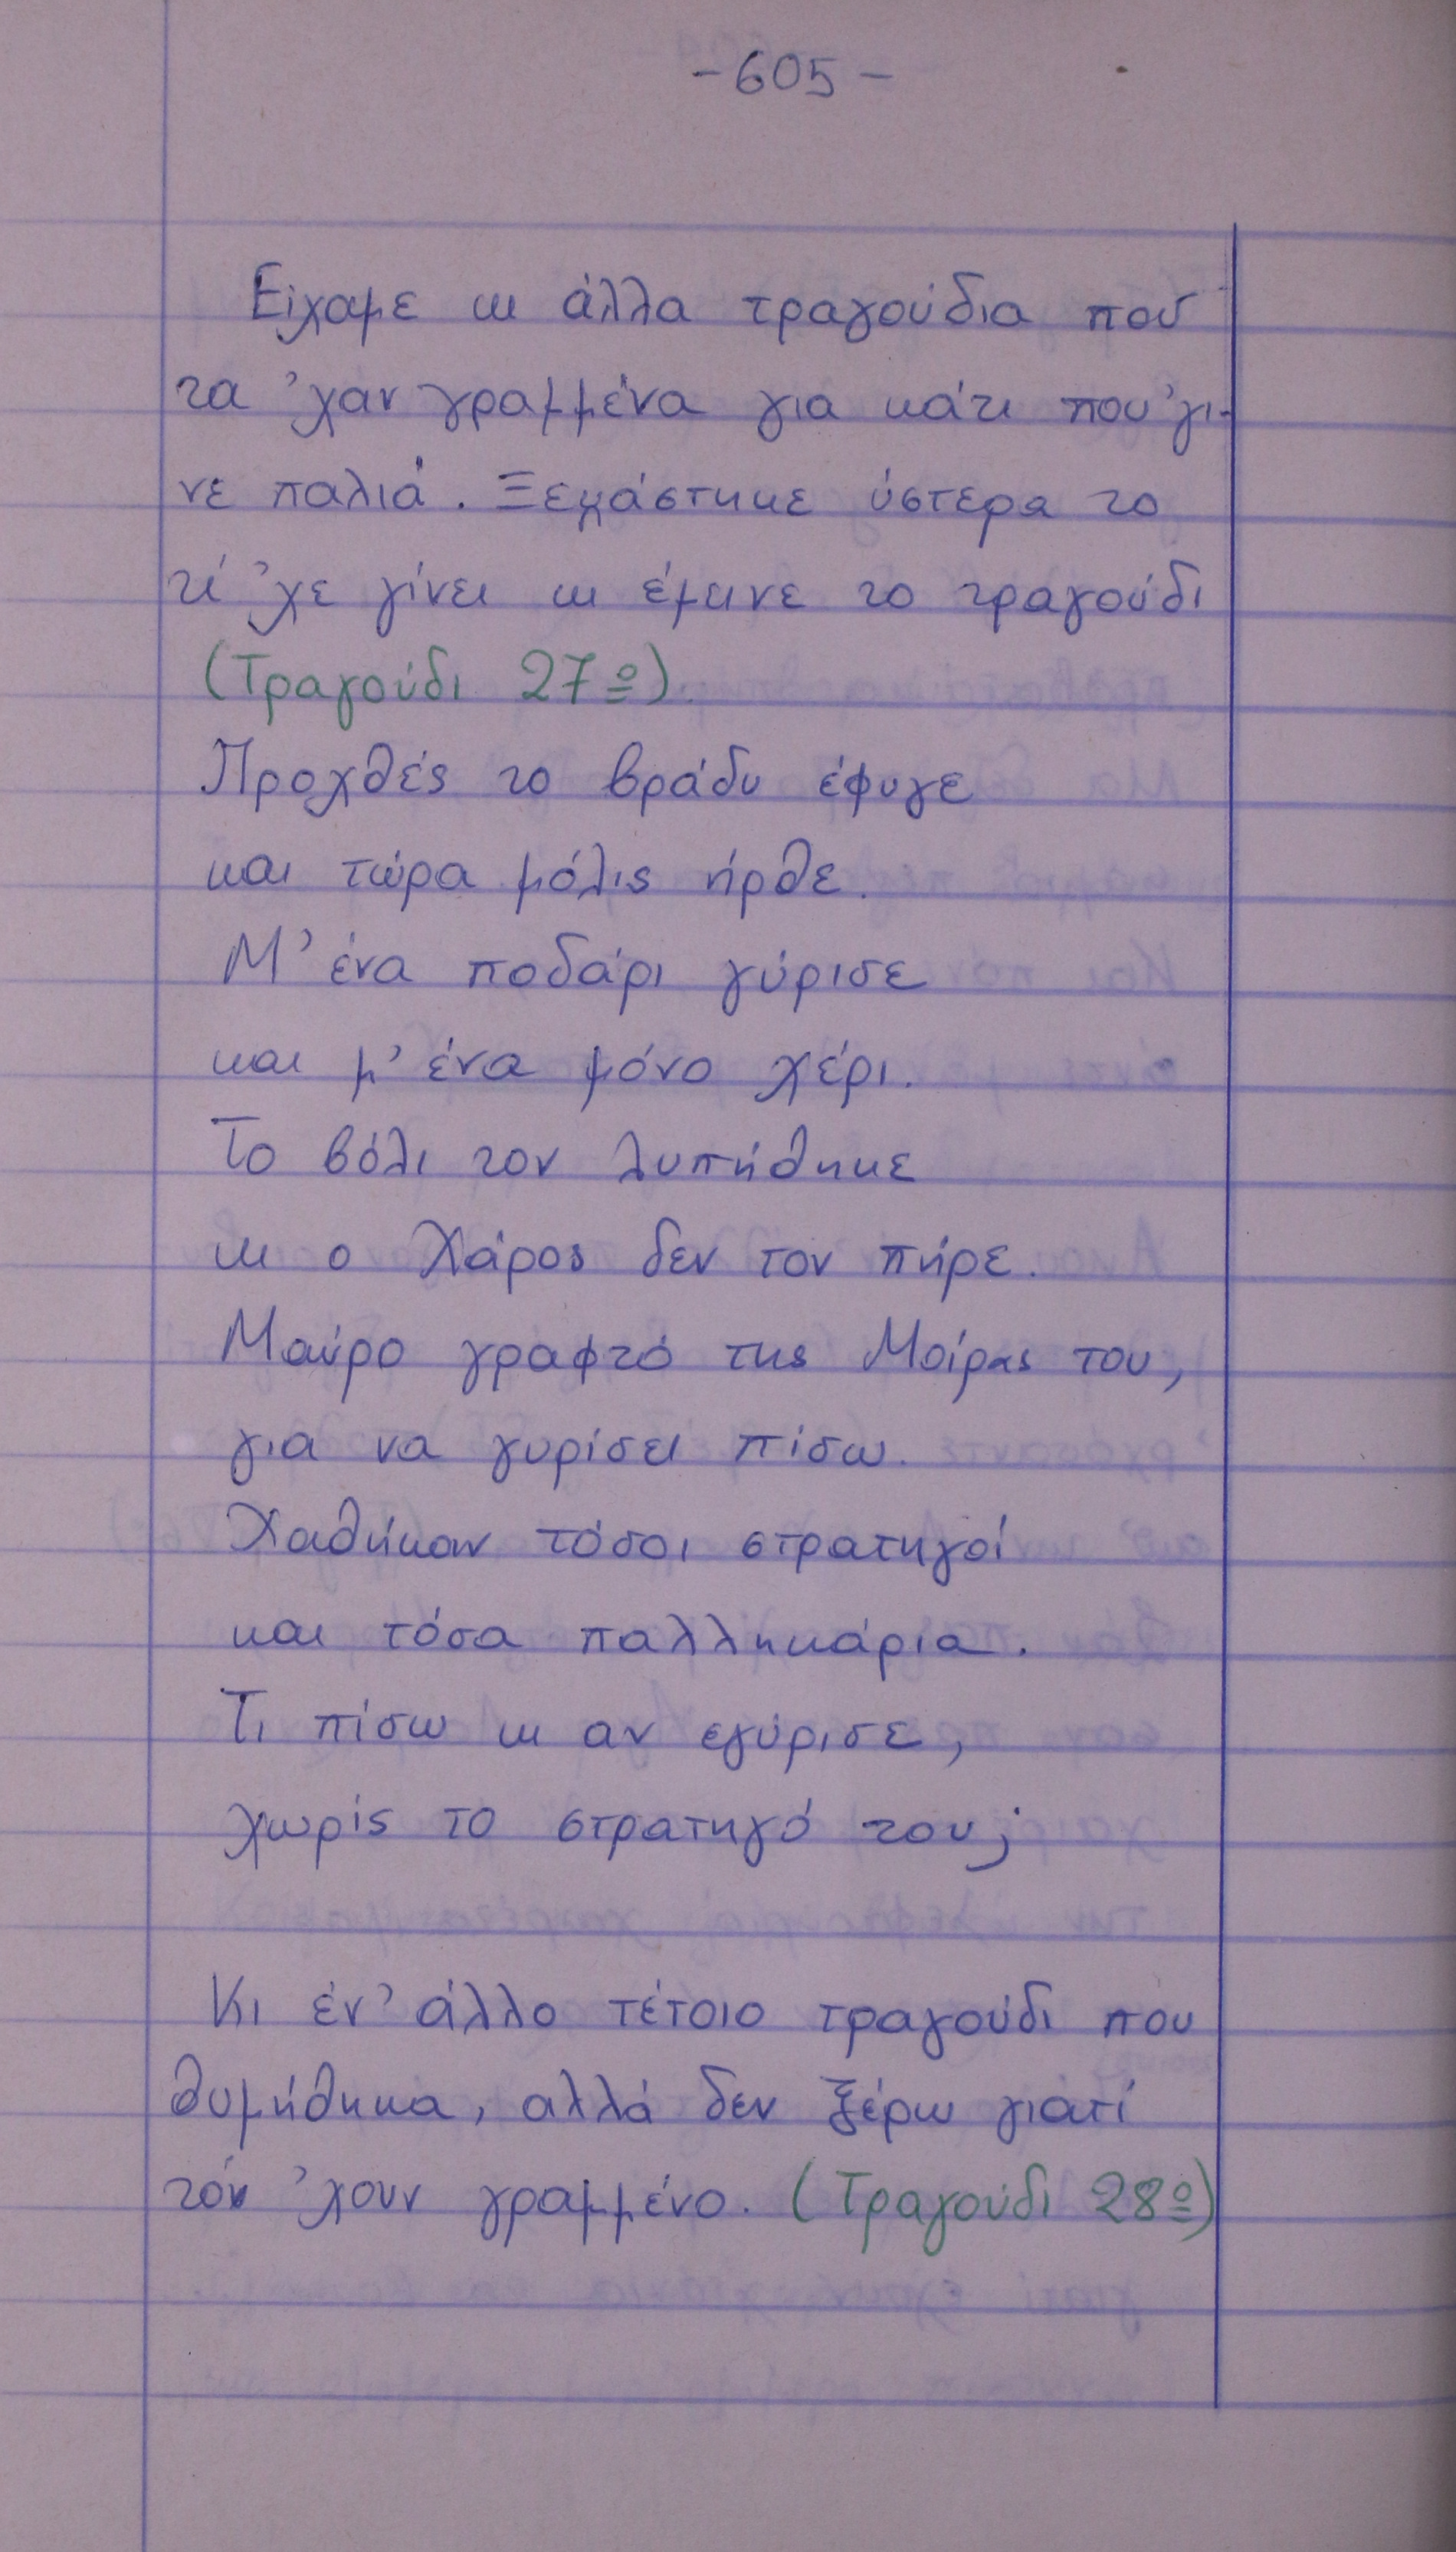 -605-
Είχαμε κι άλλα τραγούδια πού
τα 'χαν γραμμένα για κάτι που 'γι-
νε παλιά. Ξεχάστηκε ύστερα το
τί 'χε γίνει κι έμεινε το τραγούδι
(Τραγούδι 27º).
Προχθές το βράδυ έφυγε
και τώρα μόλις ήρθε.
Μ' ένα ποδάρι γύρισε
και μ' ένα μόνο χέρι.
Το βόλι τον λυπήθηκε
κι ο Χάρος δεν τον πήρε.
Μαύρο γραφτό της Μοίρας του,
για να γυρίσει πίσω.
Χαθήκαν τόσοι στρατηγοί
και τόσα παλληκάρια.
Τι πίσω κι αν εγύρισε,
χωρίς το στρατηγό του;
Κι έν' άλλο τέτοιο τραγούδι που
θυμήθηκα, αλλά δεν ξέρω γιατί
τόν 'χουν γραμμένο. (Τραγούδι 28º)